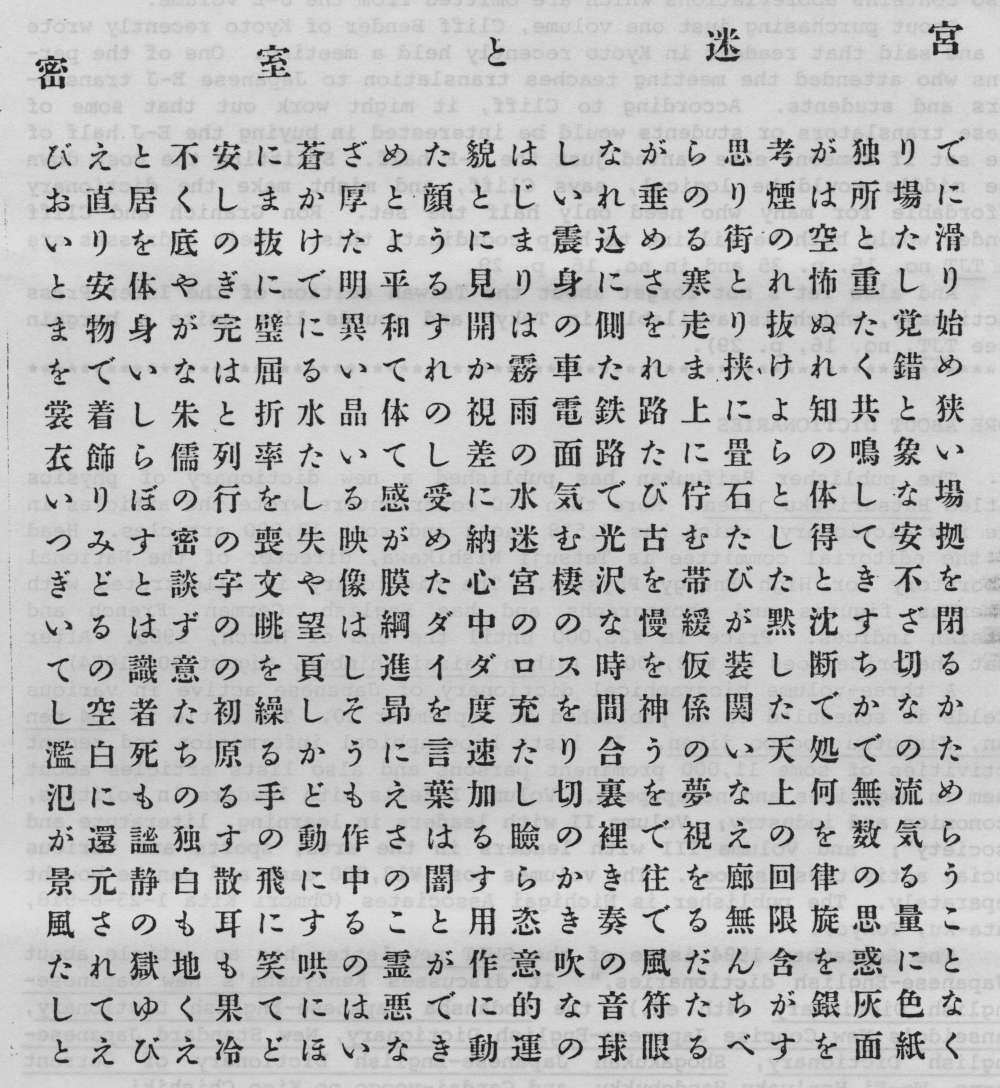 密室と迷宮
びえと不安に蒼ざめた貌はしながら思考が独りで
お直居くしまか厚と顔とじいれ垂のり煙は所場に
いりを底の抜けたようにま震込める街の空とた滑
と安体やぎにで明平る見り身にさ寒とれ怖重しり
ま物身が完璧に異和す開はの側を走り抜ぬた覚始
をでいなは屈るいてれか霧車たれま挟けれく錯め
裳着し朱と折水品体の視雨電鉄路上によ知共と狭
衣飾ら儒列率たいてし差の面路たに畳らの鳴象い
いりぼの行をしる感愛に水気でひ佇石と体しな場
つみす密の喪失映がめ納迷む光古むたし得て安拠
ぎどと談字文や像膜た心宮棲沢を帯びたとき不を
いるはずの眺望は綱ダ中ののな慢緩が黙沈ざざ閉
ての識意のを頁し進イダロス時を仮装し断ち切る
し空者た初繰しそ昂を度充を間神係関たてかなか
濫白死ち原るかうに言速たり合うのい天処でのた
氾にものる手どもえ葉加し切裏を夢な上何無流め
が還謐独すの動作さはる瞼の裡で視えのを数気ら
景元静白散飛に中の闇すらかき往る廊回律のるう
風さのも耳にすること用恣き奏てる無限旅思量こ
たれ獄地も笑哄の霊が作意吹の風だん含を惑にと
してゆく果てには悪でに的な音符たちが銀灰色な
とえびえ冷とほいなき動運の球眼るべすを面紙く